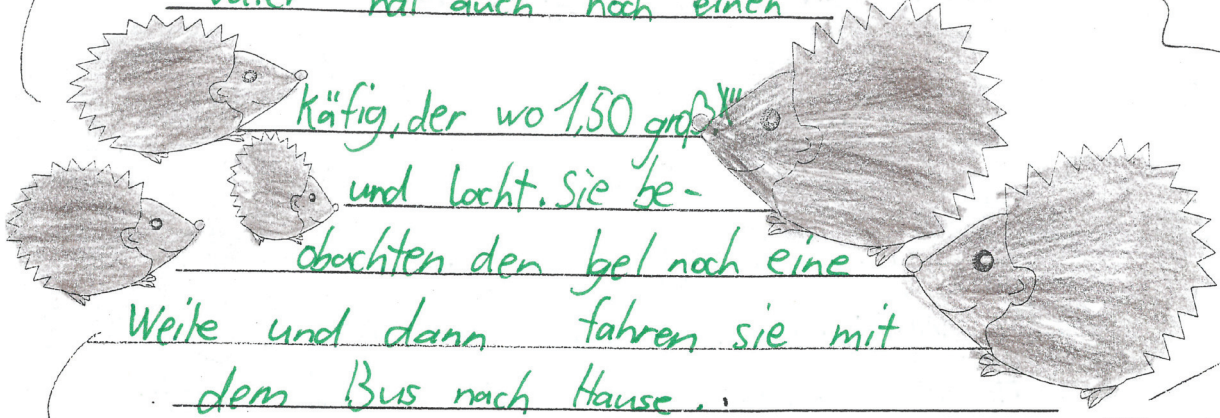 vater hat auch noch einen
Käfig, der wo 1,50 groß
und lacht. Sie be-
obachten den Igel noch eine
Weile und dann fahren sie mit
dem Bus nach Hause.